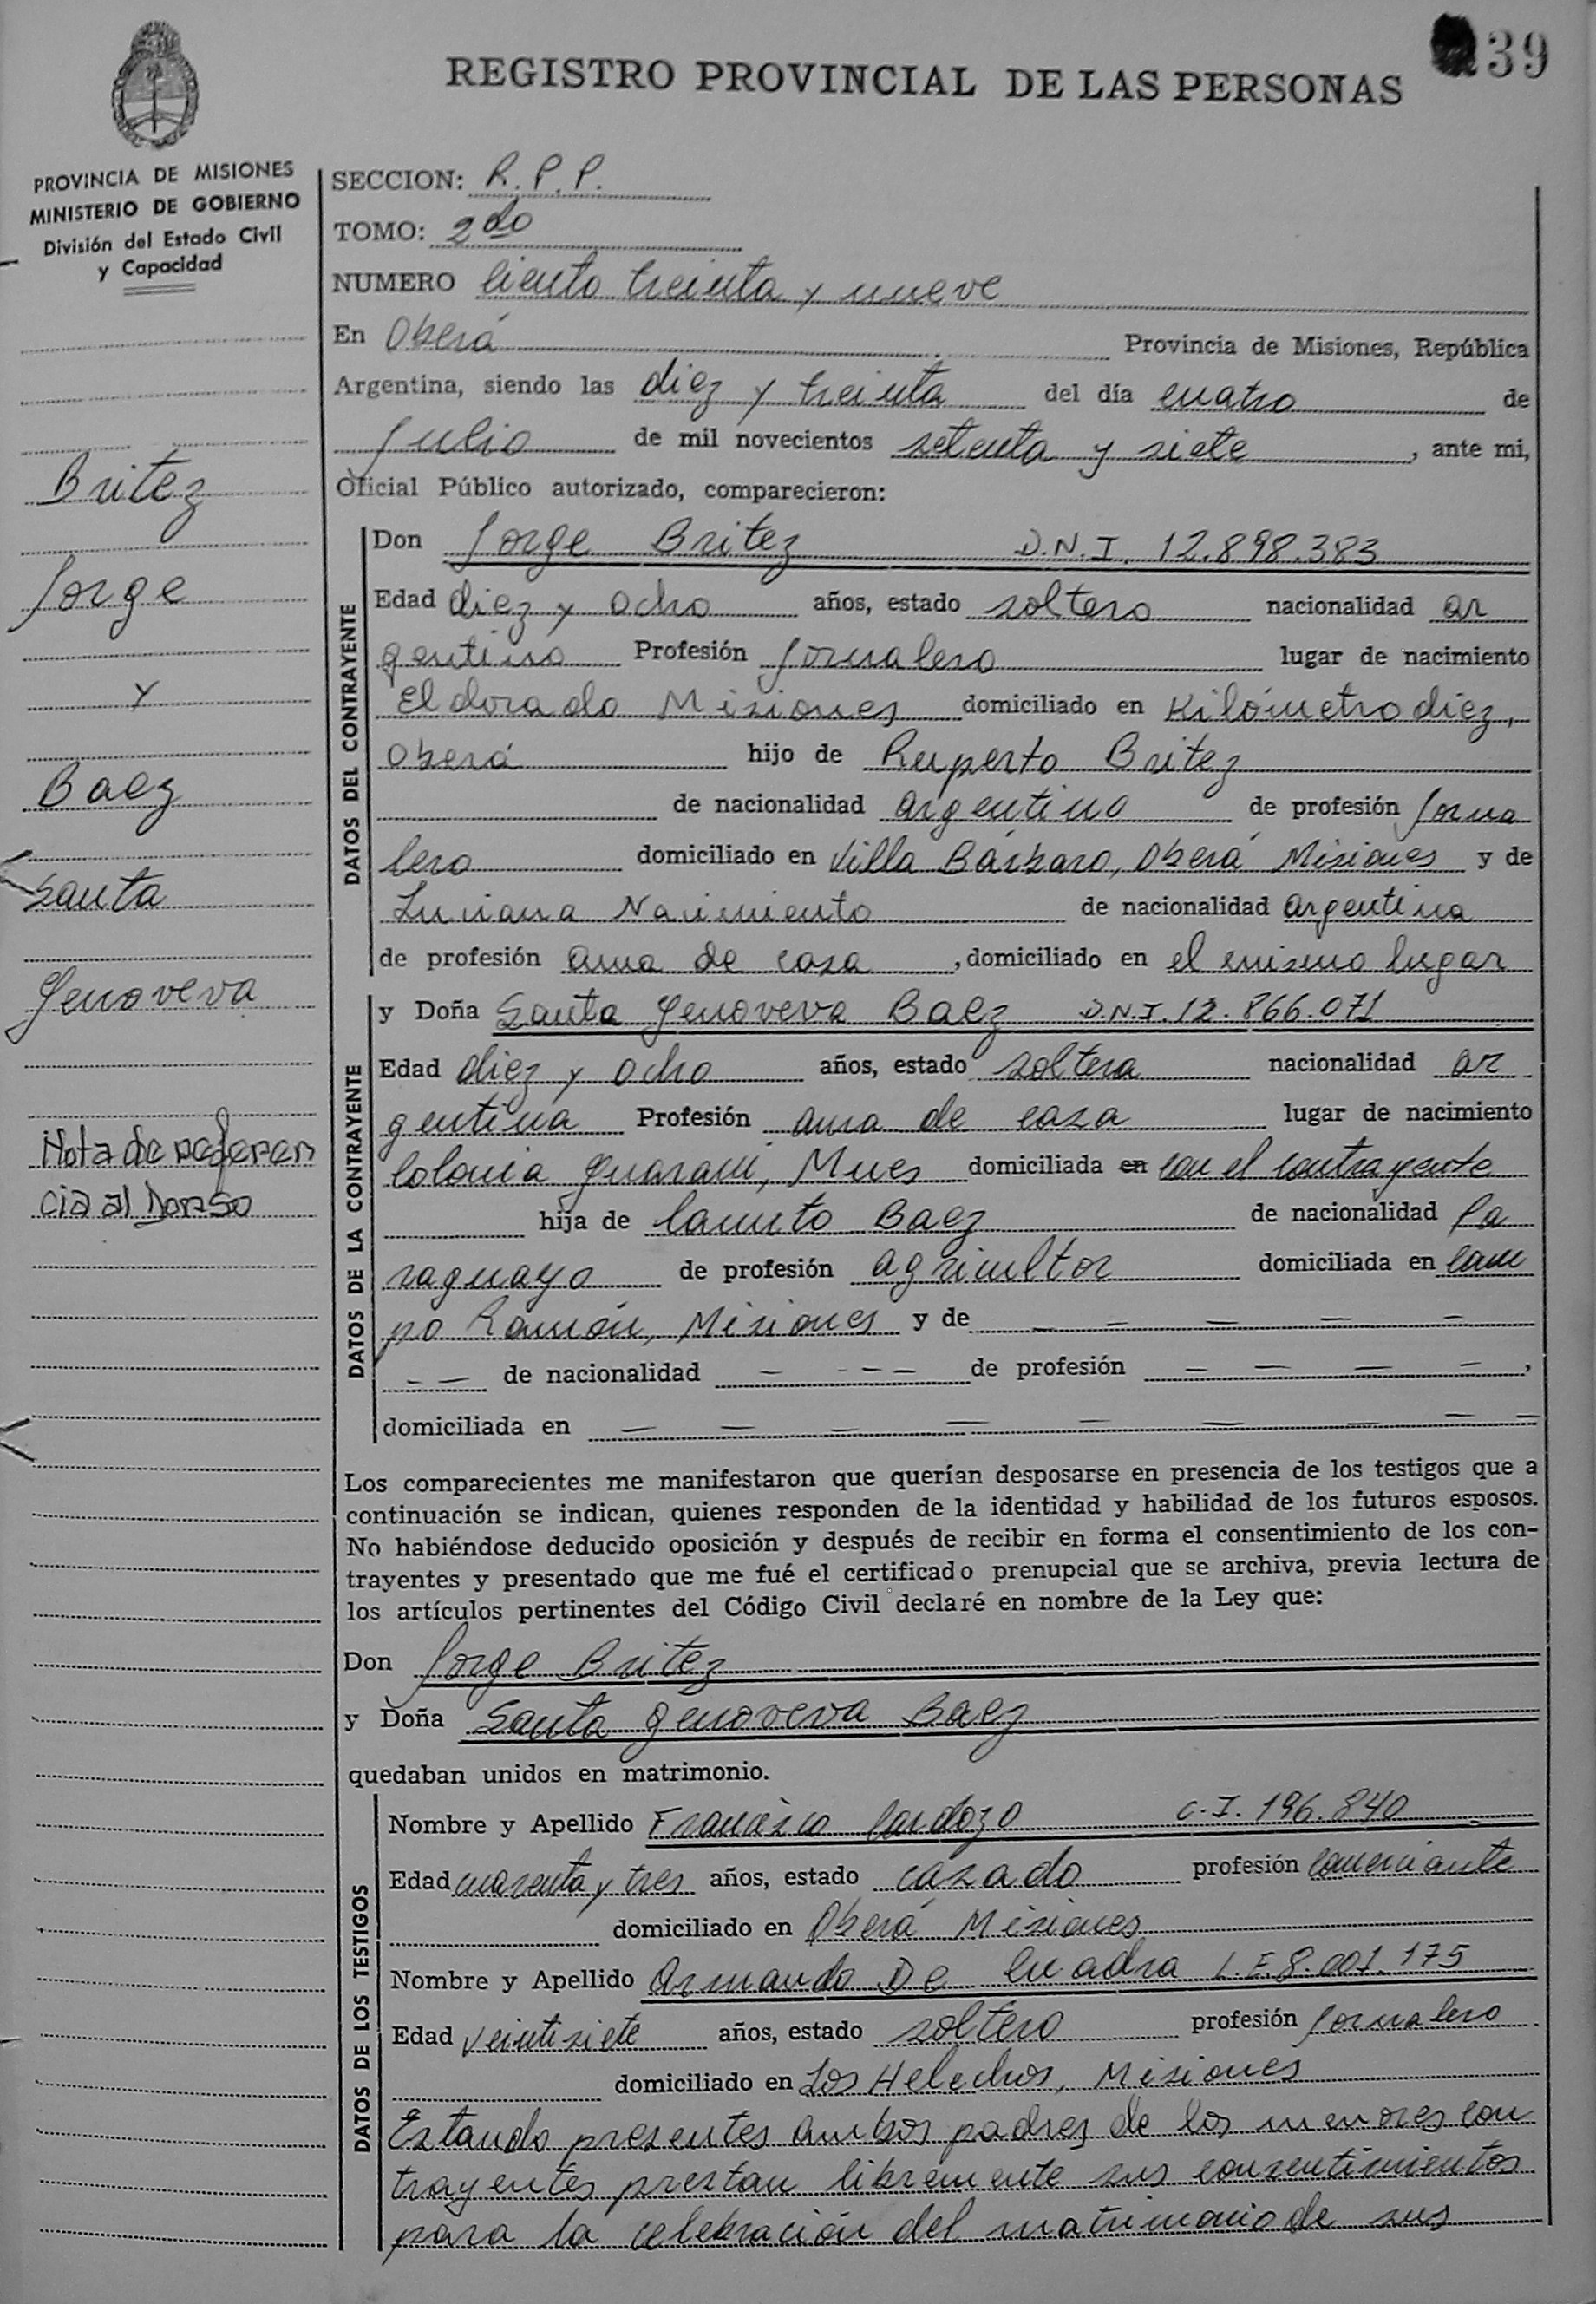 39
REGISTRO PROVINCIAL DE LAS PERSONAS
PROVINCIA DE MISIONES
MINISTERIO DE GOBIERNO
División del Estado Civil
y Capacidad
Britez
Jorge
y
Baez
Santa
Genoveva
Nota de referen
cia al Dorso
SECCION: R.P.P.
TOMO: 2do
NUMERO Ciento treinta y nueve
En Oberá Provincia de Misiones, República
Argentina, siendo las diez y treinta del día cuatro de
Julio de mil novecientos setenta y siete, ante mi,
Oficial Público autorizado, comparecieron:
DATOS DEL CONTRAYENTE
Don Jorge Britez D.N.I. 12.898.383
Edad diez y ocho años, estado soltero nacionalidad ar
gentino Profesión Jornalero lugar de nacimiento
Eldorado Misiones domiciliado en Kilómetro diez,
Oberá hijo de Ruperto Britez
de nacionalidad argentino de profesión Jorna
lero domiciliado en Villa Bárbaro, Oberá Misiones y de
Luciana Nacimiento de nacionalidad argentina
de profesión ama de casa, domiciliado en el mismo lugar
DATOS DE LA CONTRAYENTE
y Doña Santa Genoveva Baez D.N.I. 12.866.071
Edad diez y ocho años, estado soltera nacionalidad ar
gentina Profesión ama de casa lugar de nacimiento
Colonia Guarani, Mnes domiciliada en con el contrayente
hija de Canuto Baez de nacionalidad Pa
raguayo de profesión agricultor domiciliada en Cam
po Ramón, Misiones y de — — — — —
— — de nacionalidad — - — — de profesión — — — —,
domiciliada en — — — — — — — — —
Los comparecientes me manifestaron que querían desposarse en presencia de los testigos que a
continuación se indican, quienes responden de la identidad y habilidad de los futuros esposos.
No habiéndose deducido oposición y después de recibir en forma el consentimiento de los con-
trayentes y presentado que me fué el certificado prenupcial que se archiva, previa lectura de
los artículos pertinentes del Código Civil declaré en nombre de la Ley que:
Don Jorge Britez
y Doña Santa Genoveva Baez
quedaban unidos en matrimonio.
DATOS DE LOS TESTIGOS
Nombre y Apellido Francisco Cardozo C.I. 196.840
Edad cuarenta y tres años, estado casado profesión comerciante
domiciliado en Oberá Misiones
Nombre y Apellido Armando De Cuadra L.E. 8.001.175
Edad veintisiete años, estado soltero profesión Jornalero
domiciliado en Los Helechos, Misiones
Estando presentes ambos padres de los menores con
trayentes prestan libremente sus consentimientos
para la celebración del matrimonio de sus